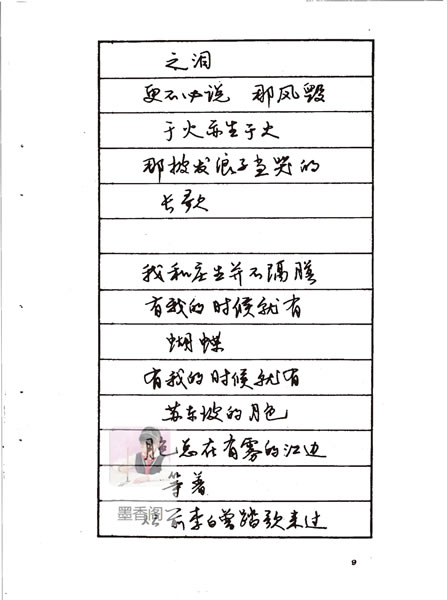 之泪
更不必说 那凤毁
于火亦生于火
那披发浪子当哭的
长歌
我和庄生并不隔膜
有我的时候就有
蝴蝶
有我的时候就有
苏东坡的月色
月色总在有雾的江边
等着
墨香阁
前李白曾踏歌来过
9